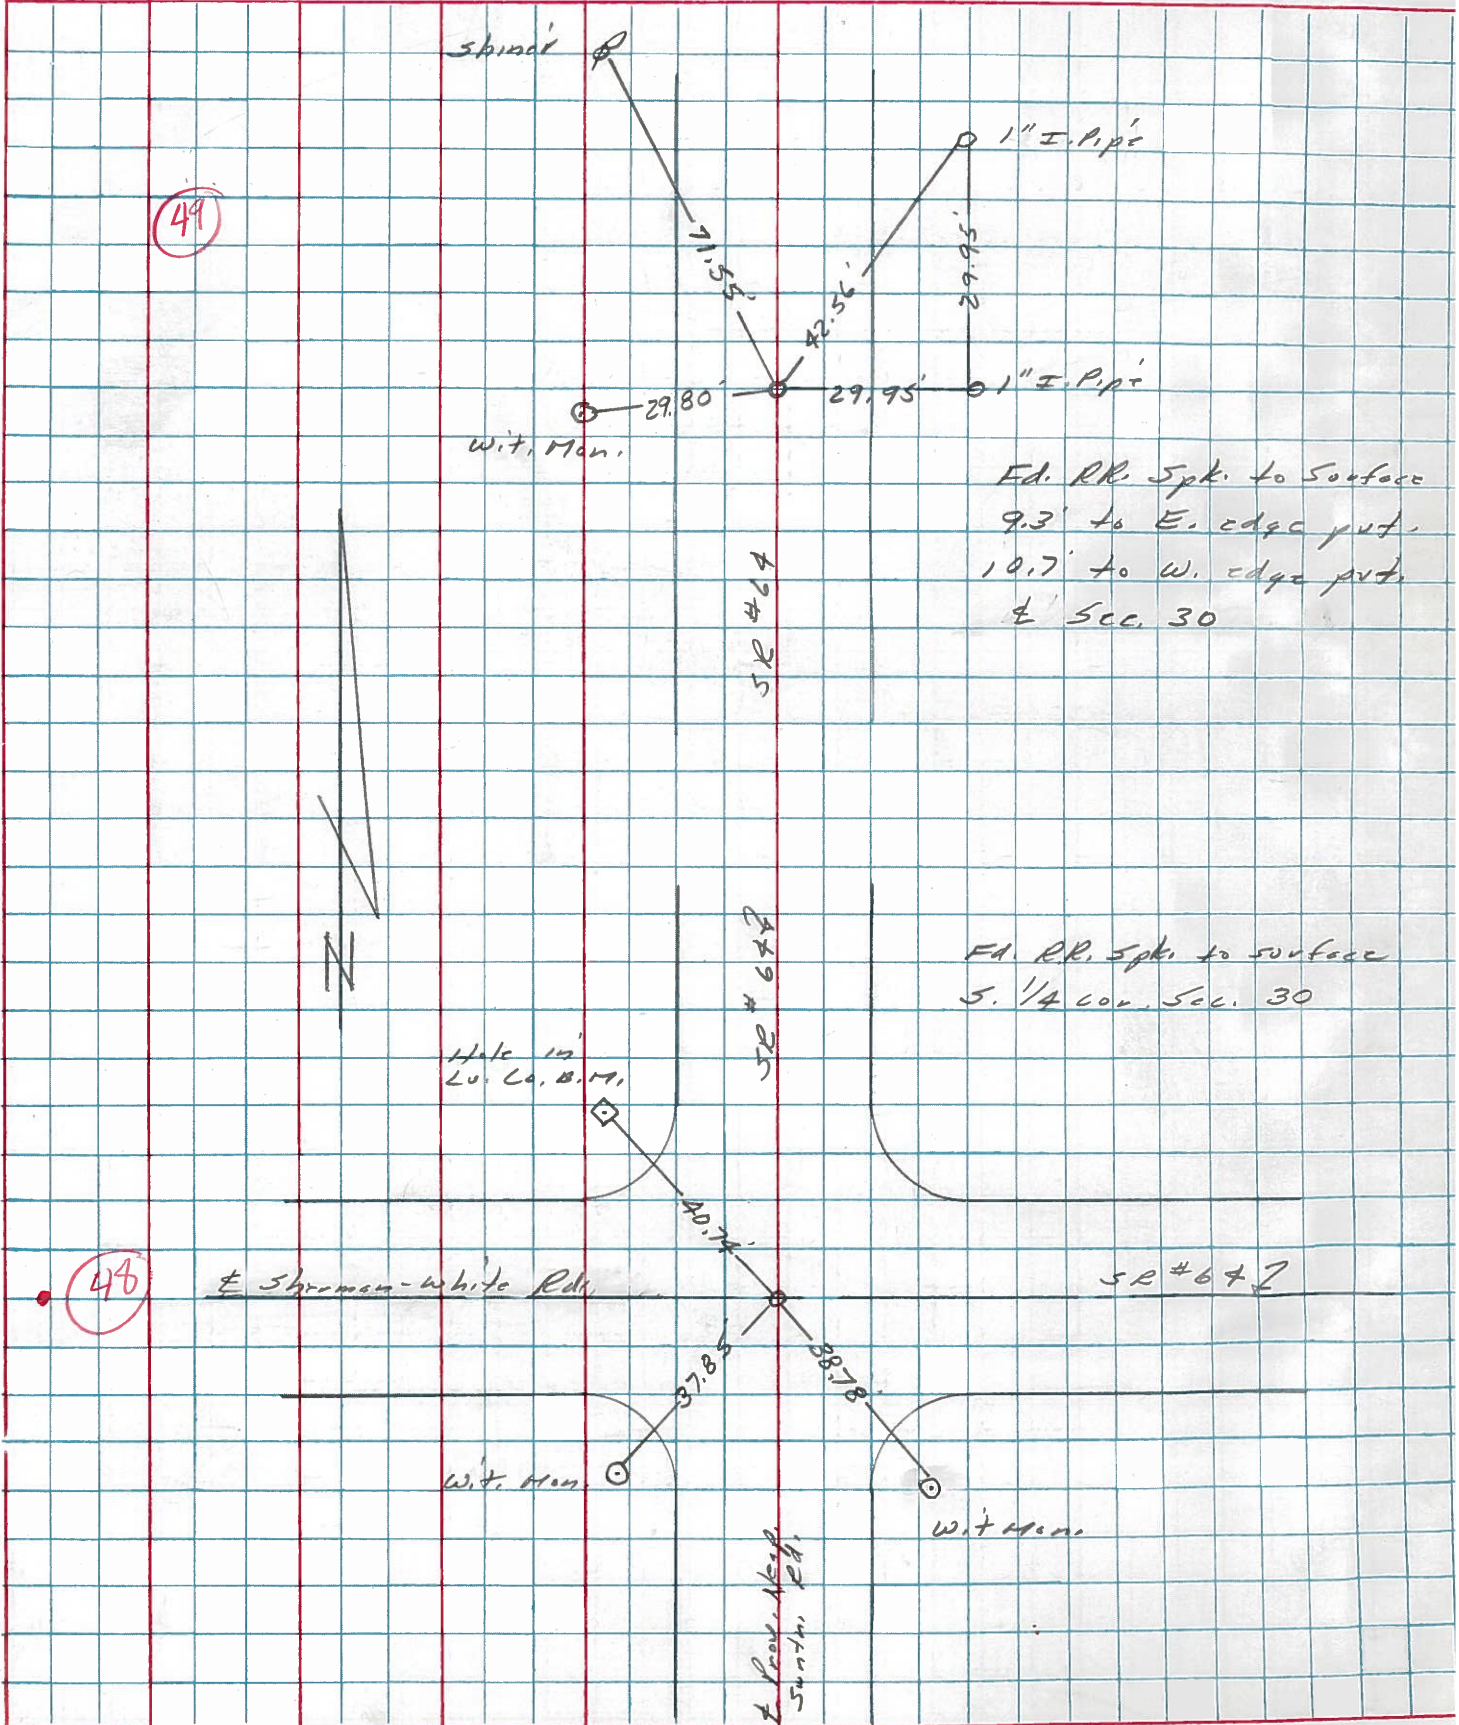 shiner
1" I. Pipe
49
71.55'
42.56'
29.95'
29.80'
29.95'
1" I. Pipe
Wit. Mon.
Fd. RR. Spk. to Surface
9.3' to E. edge pvt.
10.7' to W. edge pvt.
℄ Sec. 30
SR #64
N
SR # 64
Fd. R.R. Spk. to surface
S. 1/4 cor. Sec. 30
Hole in
Lu. Co. B.M.
40.74'
48
℄ Sherman-White Rd.
SR #64
37.85'
38.78'
Wit. Mon.
Wit Mon.
℄ Prov. Neap.
Swntn. Rd.